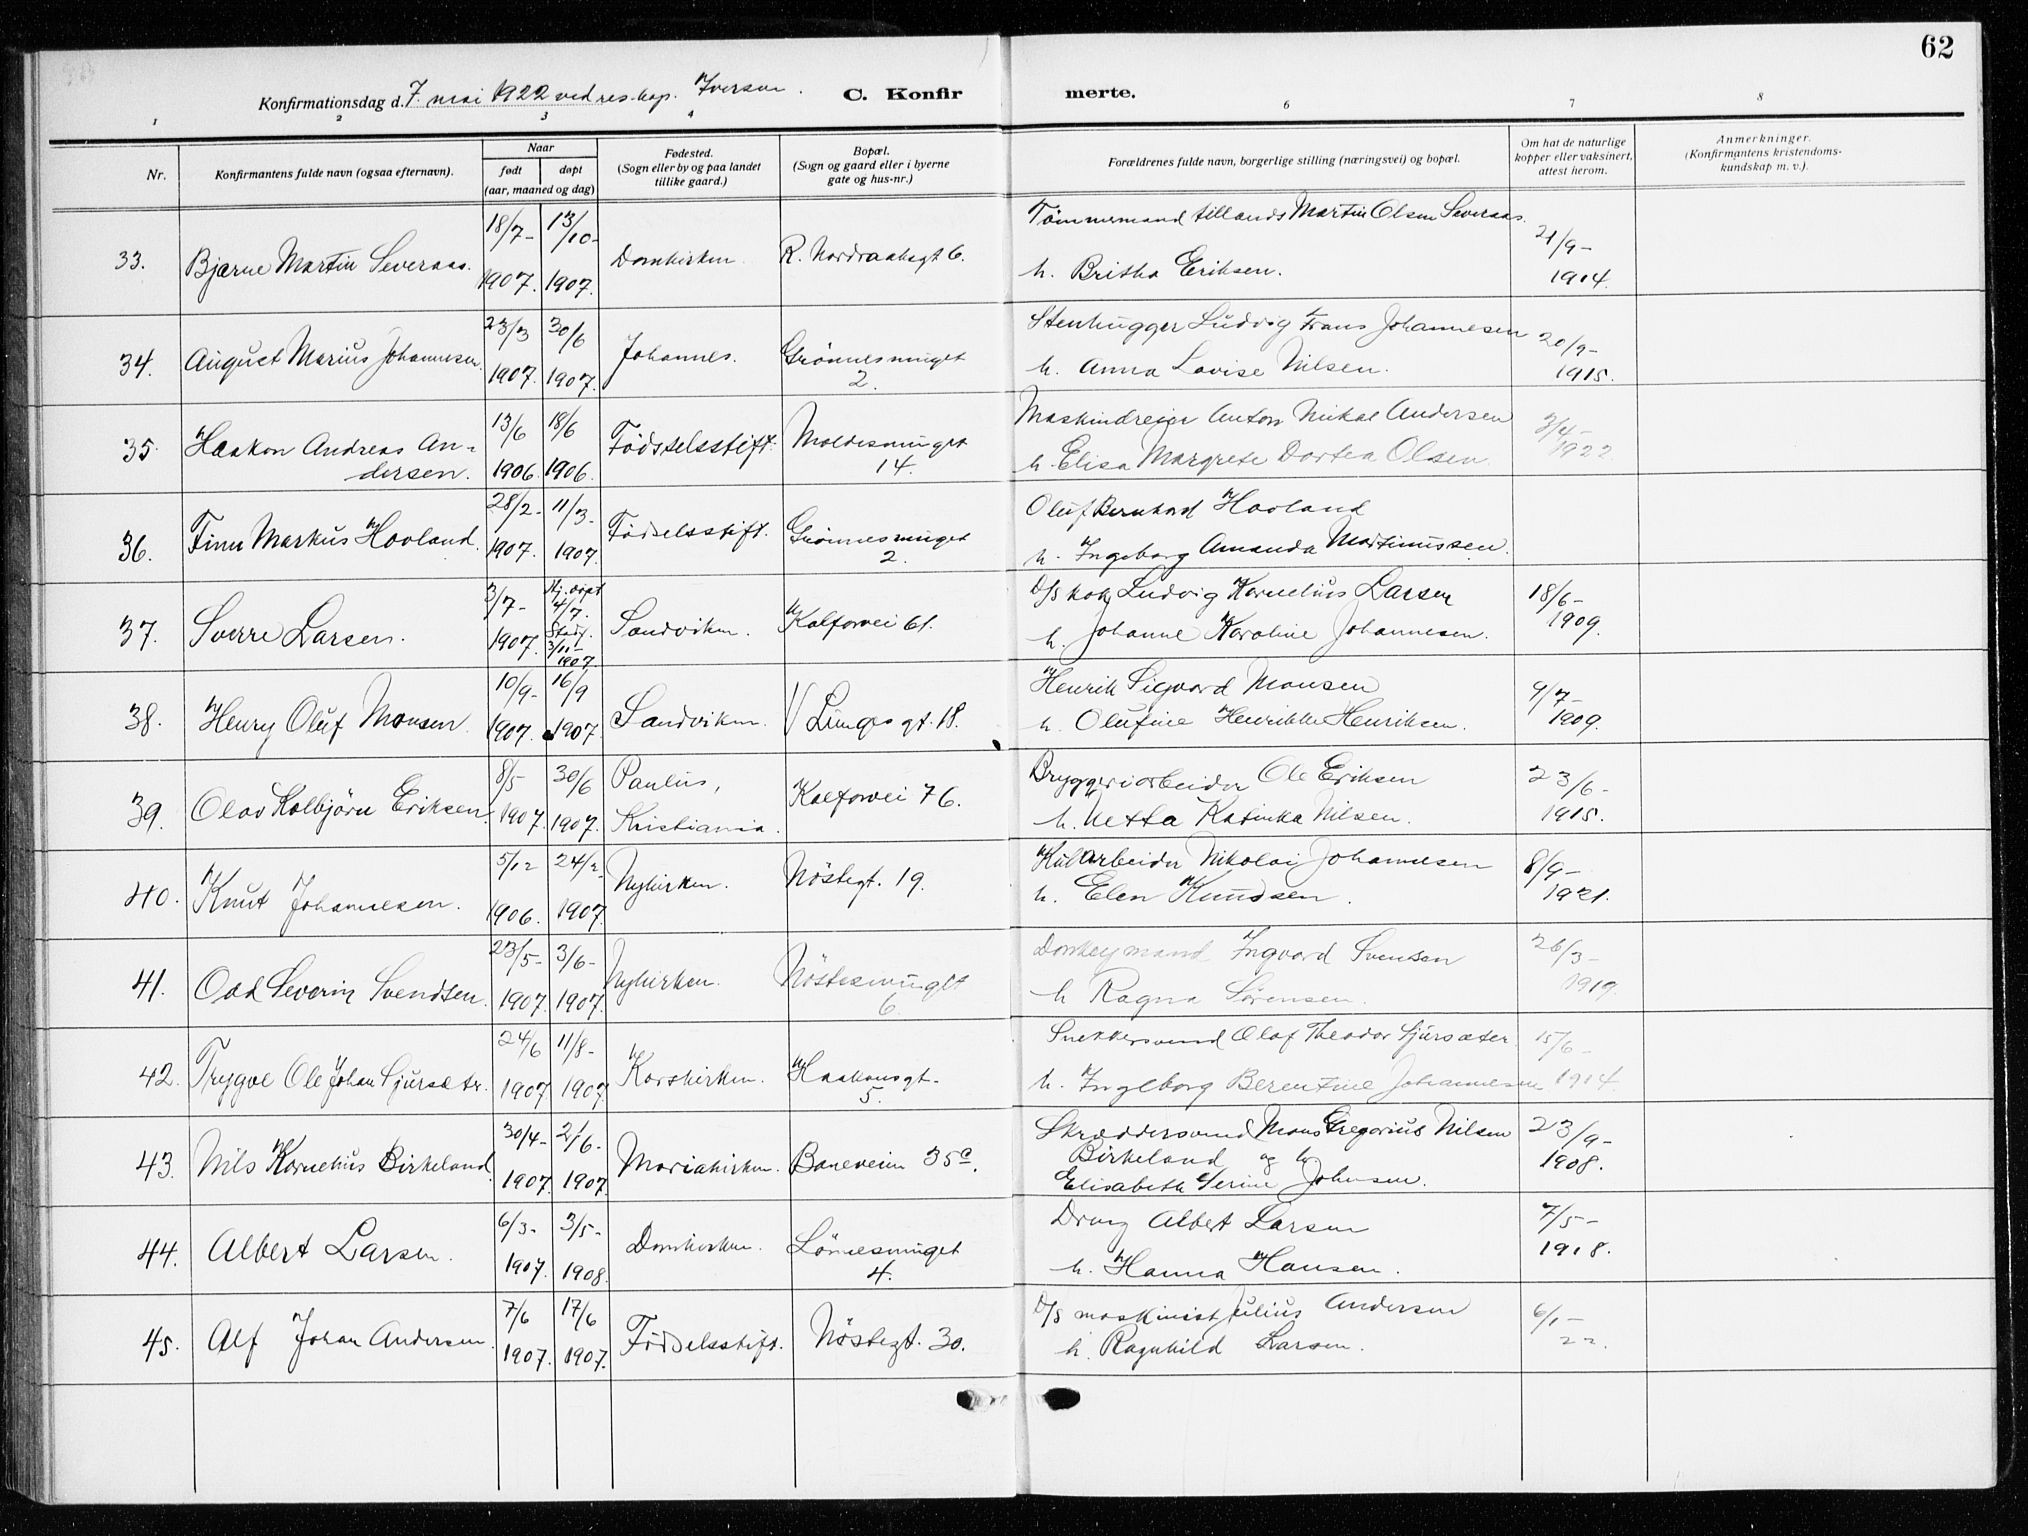 62
Konfirmationsdag d. 7. mai 1922 ved res. kap. Iversen. C. Konfirmerte.
1 2 3 4 6 7 8
Nr.
Konfirmantens fulde navn (ogsaa efternavn).
Naar
født døpt
(aar, maaned og dag)
Fødested.
(Sogn eller by og paa landet
tillike gaard.)
Bopæl.
(Sogn og gaard eller i byerne
gate og hus-nr.)
Forældrenes fulde navn, borgerlige stilling (næringsvei) og bopæl.
Om hat de naturlige
kopper eller vaksinert,
attest herom.
Anmerkninger.
(Konfirmantens kristendoms-
kundskap m. v.).
33. Bjarne Martin Severaas. 18/7- 1907. 13/10- 1907. Domkirken. R. Nordraaksgt 6.
Tömmermand tillands Martin Olsen Severaas.
h. Britha Eriksen.
21/9- 1914.
34. August Marius Johannesen. 23/3 1907. 30/6 1907. Johannes. Grönnesmuget 2.
Stenhugger Ludvig Frans Johannesen
h. Anna Lovise Nilsen.
20/9- 1915.
35. Haakon Andreas An-
dersen. 13/6 1906. 18/6 1906. Födselsstift. Moldesmuget 14.
Maskindreier Anton Mikal Andersen
h. Elisa Margrete Dortea Olsen.
3/4- 1922
36. Finn Markus Hovland. 28/2- 1907. 11/3- 1907. Födselsstift. Grönnesmuget 2.
Oluf Bernhard Hovland
h. Ingeborg Amanda Martinussen.
37. Sverre Larsen. 3/7- 1907. Hj. döpt 4/7. Stadf. 3/11- 1907. Sandviken. Kalfarvei 61.
D/s kok Ludvig Kornelius Larsen
h. Johanne Karoline Johannesen.
18/6- 1909.
38. Henry Oluf Monsen. 10/9- 1907. 16/9 1907. Sandviken. V Lungsgt. 18.
Henrik Sigvard Monsen
h. Olufine Henrikke Henriksen.
9/7- 1909.
39. Olav Kolbjörn Eriksen. 8/5 1907. 30/6 1907. Paulus,
Kristiania. Kalfarvei 76.
Bryggeriarbeider Ole Eriksen
h. Netta Katinka Nilsen.
23/6- 1915.
40. Knut Johannesen. 5/12 1906. 24/2- 1907. Nykirken. Nöstegt. 19.
Kularbeider Nikolai Johannesen
h. Elen Knudsen.
8/9- 1921.
41. Odd Severin Svendsen. 23/5- 1907. 3/6- 1907. Nykirken. Nöstesmuget 6.
Donkeymand Ingvard Svensen
h Ragna Sörensen.
26/3- 1919.
42. Trygve Ole Johan Sjursætr. 24/6 1907 11/8- 1907. Korskirken. Haakonsgt. 5.
Snekkersvend Olaf Theodor Sjursæter
h. Ingeborg Berentine Johannesen
15/6- 1914.
43. Nils Kornelius Birkeland. 30/4- 1907. 2/6- 1907. Mariakirken. Baneveien 35c.
Skræddersvend Mons Gregorius Nilsen
Birkeland og h.
Elisabeth Serine Johnsen.
23/9- 1908.
44. Albert Larsen. 6/3- 1907. 3/5- 1908. Domkirken. Lönnesmuget 4.
Albert Larsen
h. Hanna Hansen.
7/5- 1918.
45. Alf Johan Andersen. 7/6 1907. 17/6 1907. Födselsstift. Nöstegt. 30.
D/s maskinist Julius Andersen
h. Ragnhild Larsen.
6/1- 22.